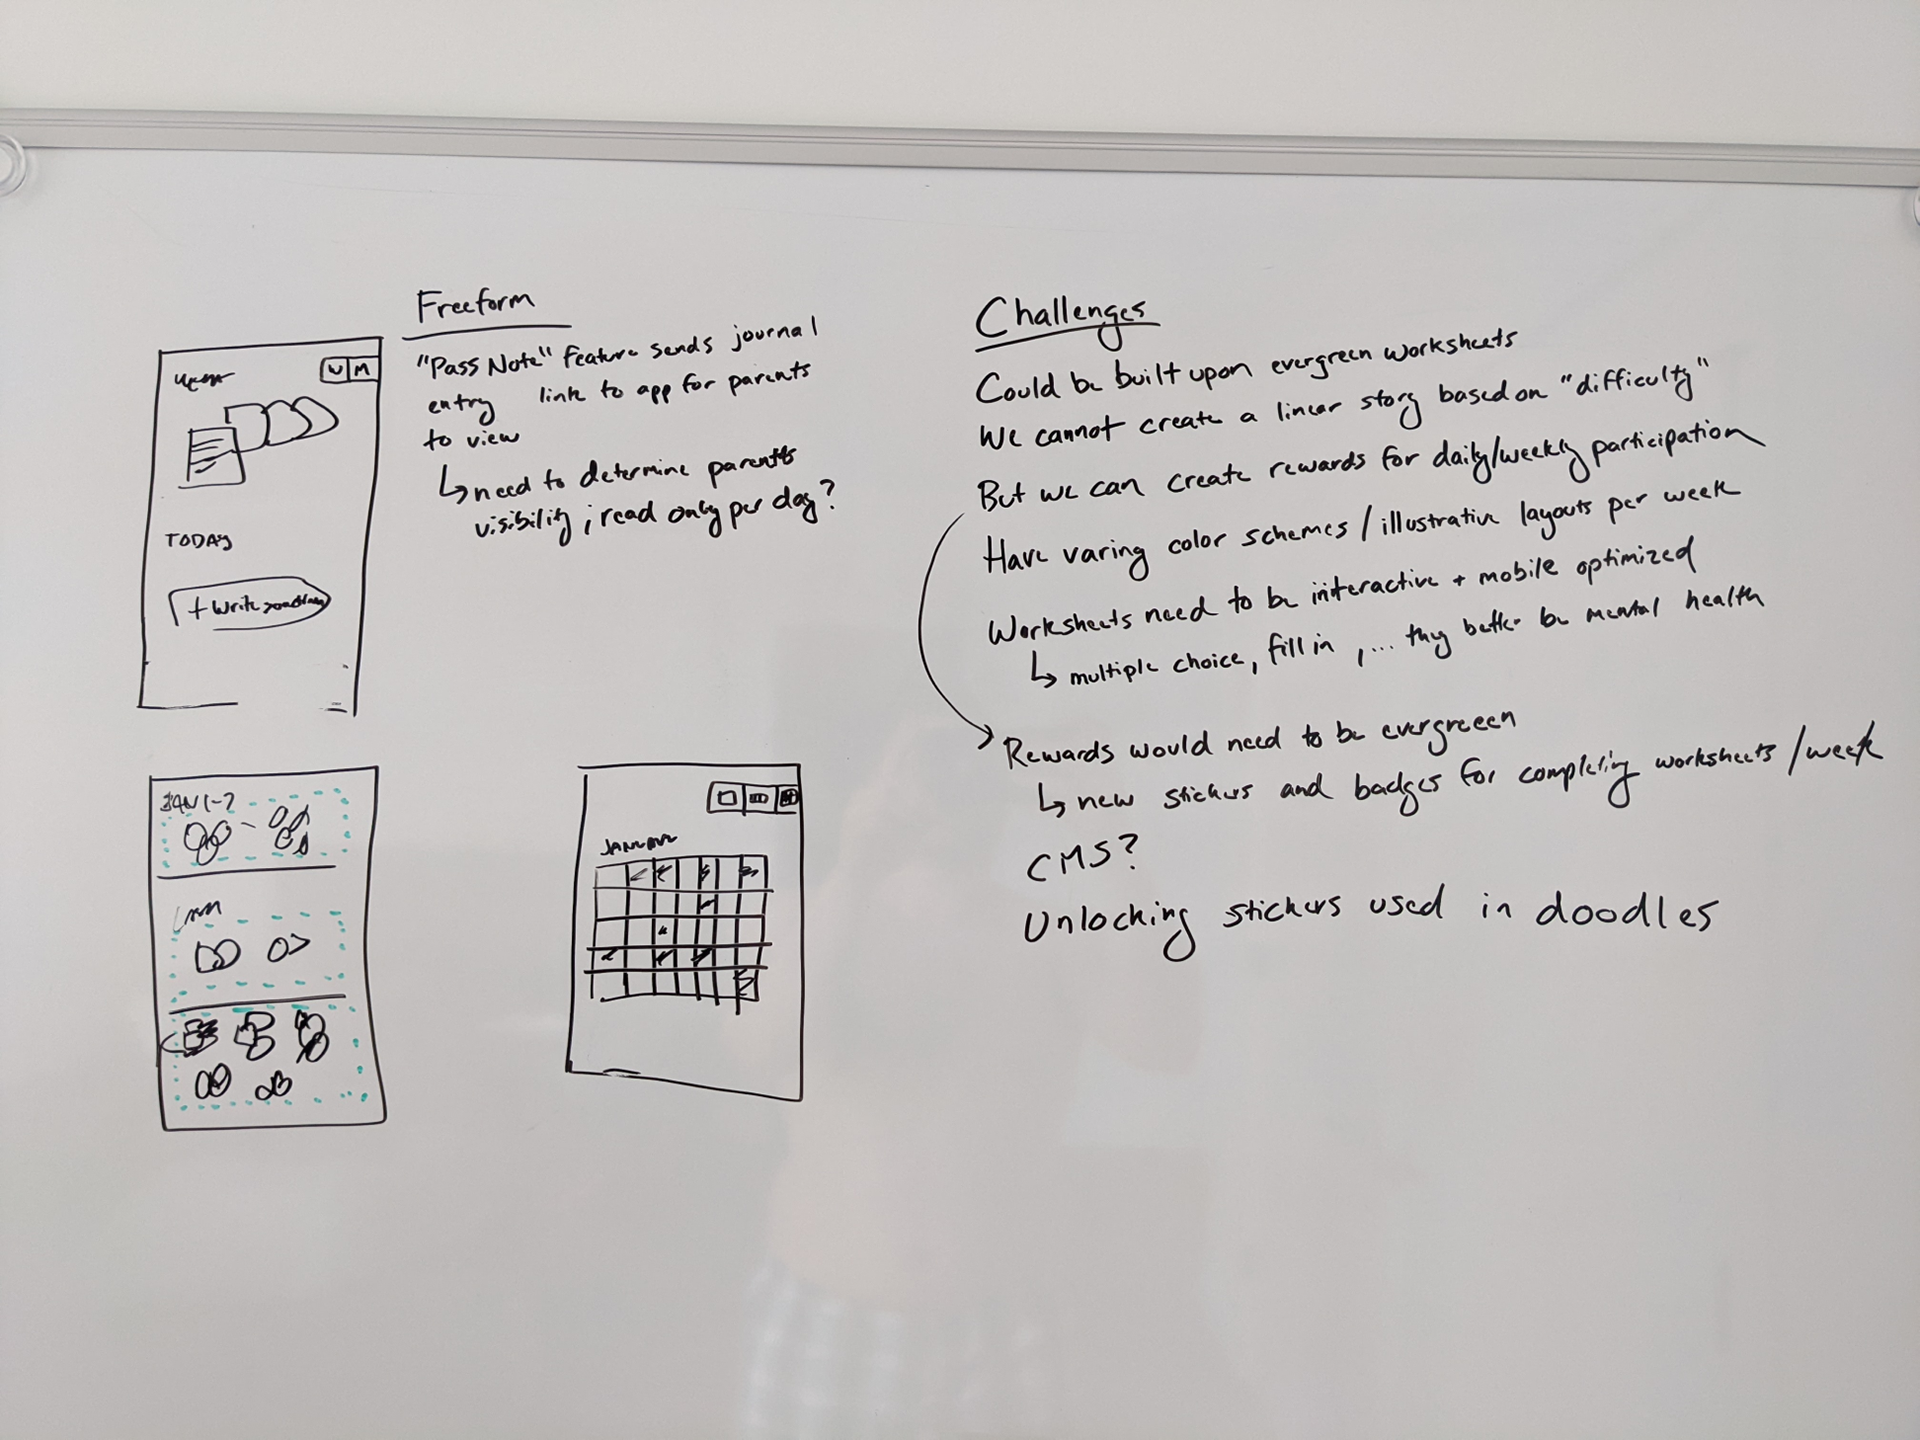 Freeform
"Pass Note" feature sends journal
entry link to app for parents
to view
↳ need to determine parents
visibility; read only per day?
W M
TODAY
+ Write something
JAN 1-7
JANUARY
Challenges
Could be built upon evergreen worksheets
We cannot create a linear story based on "difficulty"
But we can create rewards for daily/weekly participation
Have varing color schemes / illustrative layouts per week
Worksheets need to be interactive + mobile optimized
↳ multiple choice, fill in, ... they better be mental health
Rewards would need to be evergreeen
↳ new stickers and badges for completing worksheets /week
CMS?
Unlocking stickers used in doodles